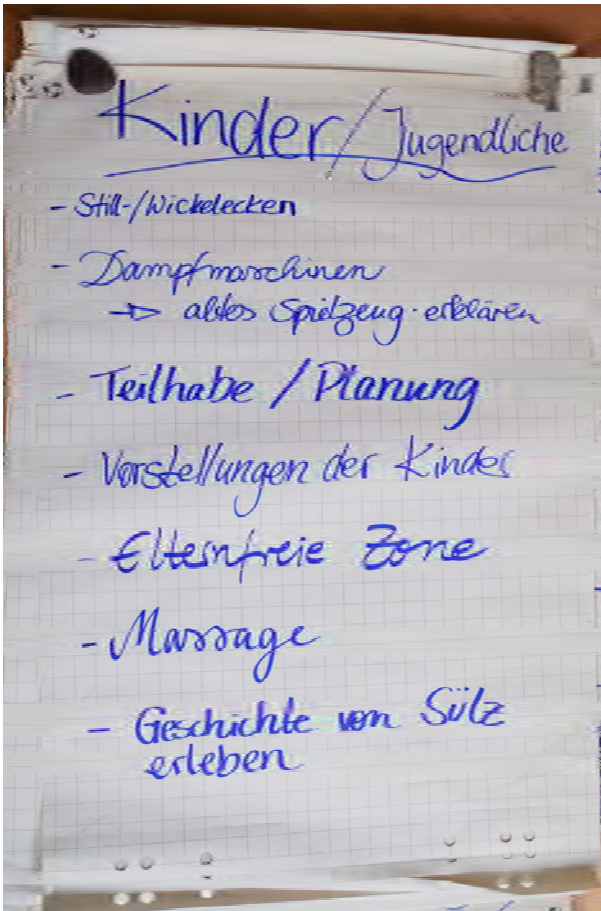 Kinder/Jugendliche
- Still-/Wickelecken
- Dampfmaschinen
→ altes Spielzeug erklären
- Teilhabe / Planung
- Vorstellungen der Kinder
- Elternfreie Zone
- Massage
- Geschichte von Sülz
erleben